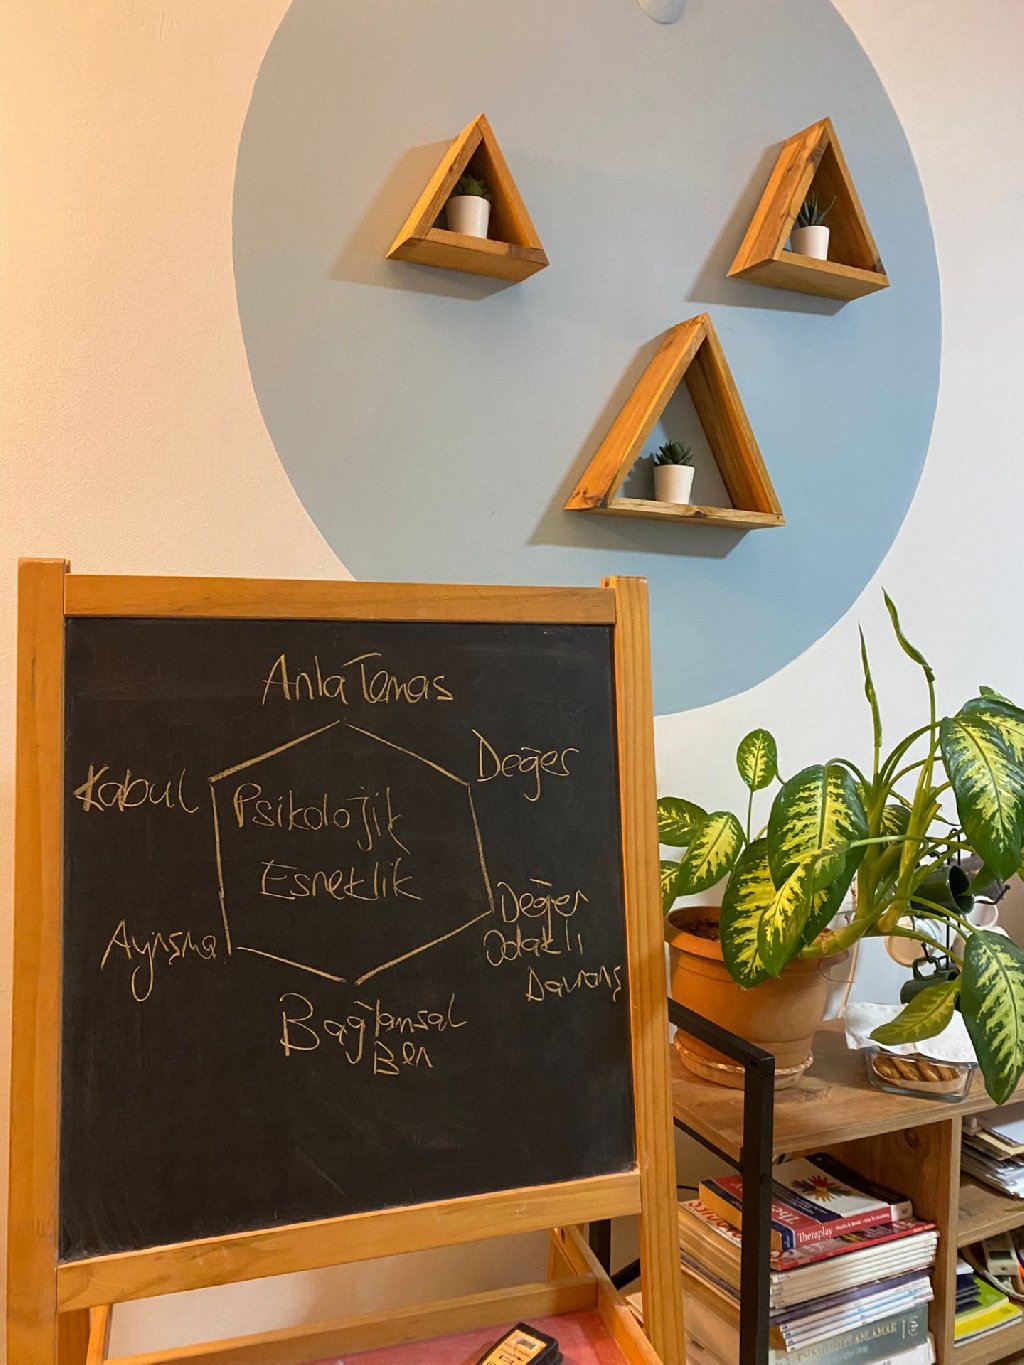 Anla Temas
Değer
Kabul
Psikolojik
Esneklik
Değer
Odaklı
Davranış
Ayrışma
Bağlamsal
Ben
Theraplay